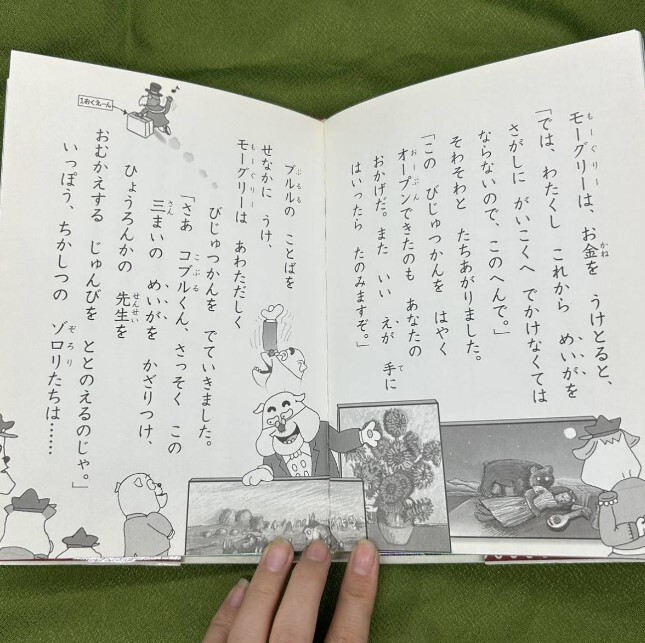 モーグリーは、お金を うけとると、
「では、わたくし これから めいがを
さがしに がいこくへ でかけなくては
ならないので、このへんで。」
そわそわと たちあがりました。
「この びじゅつかんを はやく
オープンできたのも あなたの
おかげだ。また いい えが 手に
はいったら たのみますぞ。」
ブルルの ことばを
せなかに うけ、
モーグリーは あわただしく
びじゅつかんを でていきました。
「さあ コブルくん、さっそく この
三まいの めいがを かざりつけ、
ひょうろんかの 先生を
おむかえする じゅんびを ととのえるのじゃ。」
いっぽう、ちかしつの ゾロリたちは……
1おくえーん